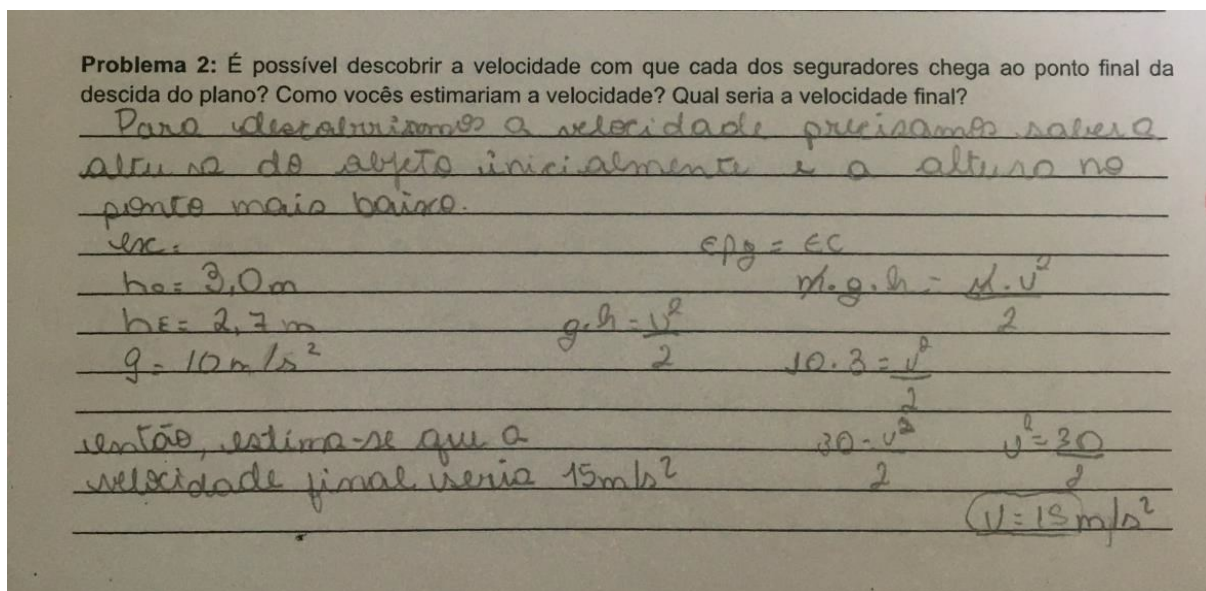 Problema 2: É possível descobrir a velocidade com que cada dos seguradores chega ao ponto final da
descida do plano? Como vocês estimariam a velocidade? Qual seria a velocidade final?
Para descobrirmos a velocidade precisamos saber a
altura do objeto inicialmente e a altura no
ponto mais baixo.
ex: Epg = EC
h0 = 3,0m m.g.h = m.v²/2
hE = 2,7m g.h = v²/2
g = 10m/s² 10.3 = v²/2
então, estima-se que a 30 = v²/2 v² = 30/2
velocidade final seria 15m/s²
V = 15m/s²